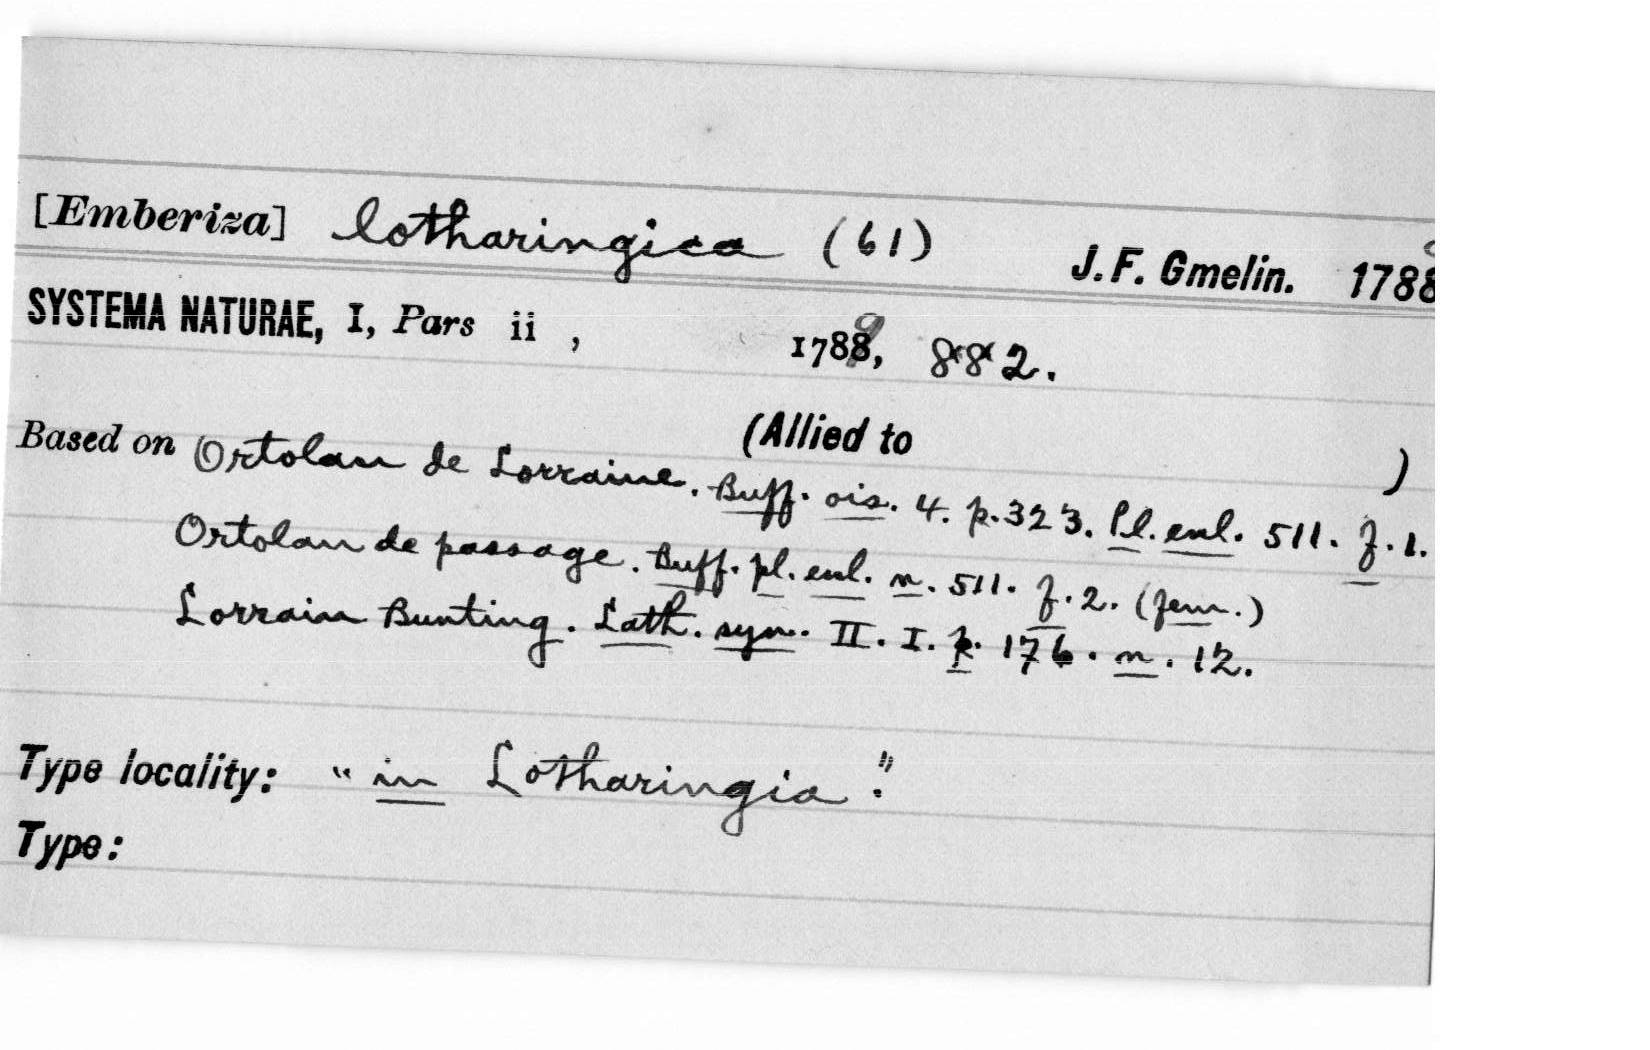 [Emberiza] lotharingica (61) J. F. Gmelin. 1788
SYSTEMA NATURAE, I, Pars ii, 1789, 882.
(Allied to )
Based on Ortolan de Lorraine. Buff. ois. 4. p. 323. Pl. enl. 511. f. 1.
Ortolan de passage. Buff. pl. enl. n. 511. f. 2. (fem.)
Lorrain Bunting. Lath. syn. II. I. p. 176. n. 12.
Type locality: "in Lotharingia."
Type: